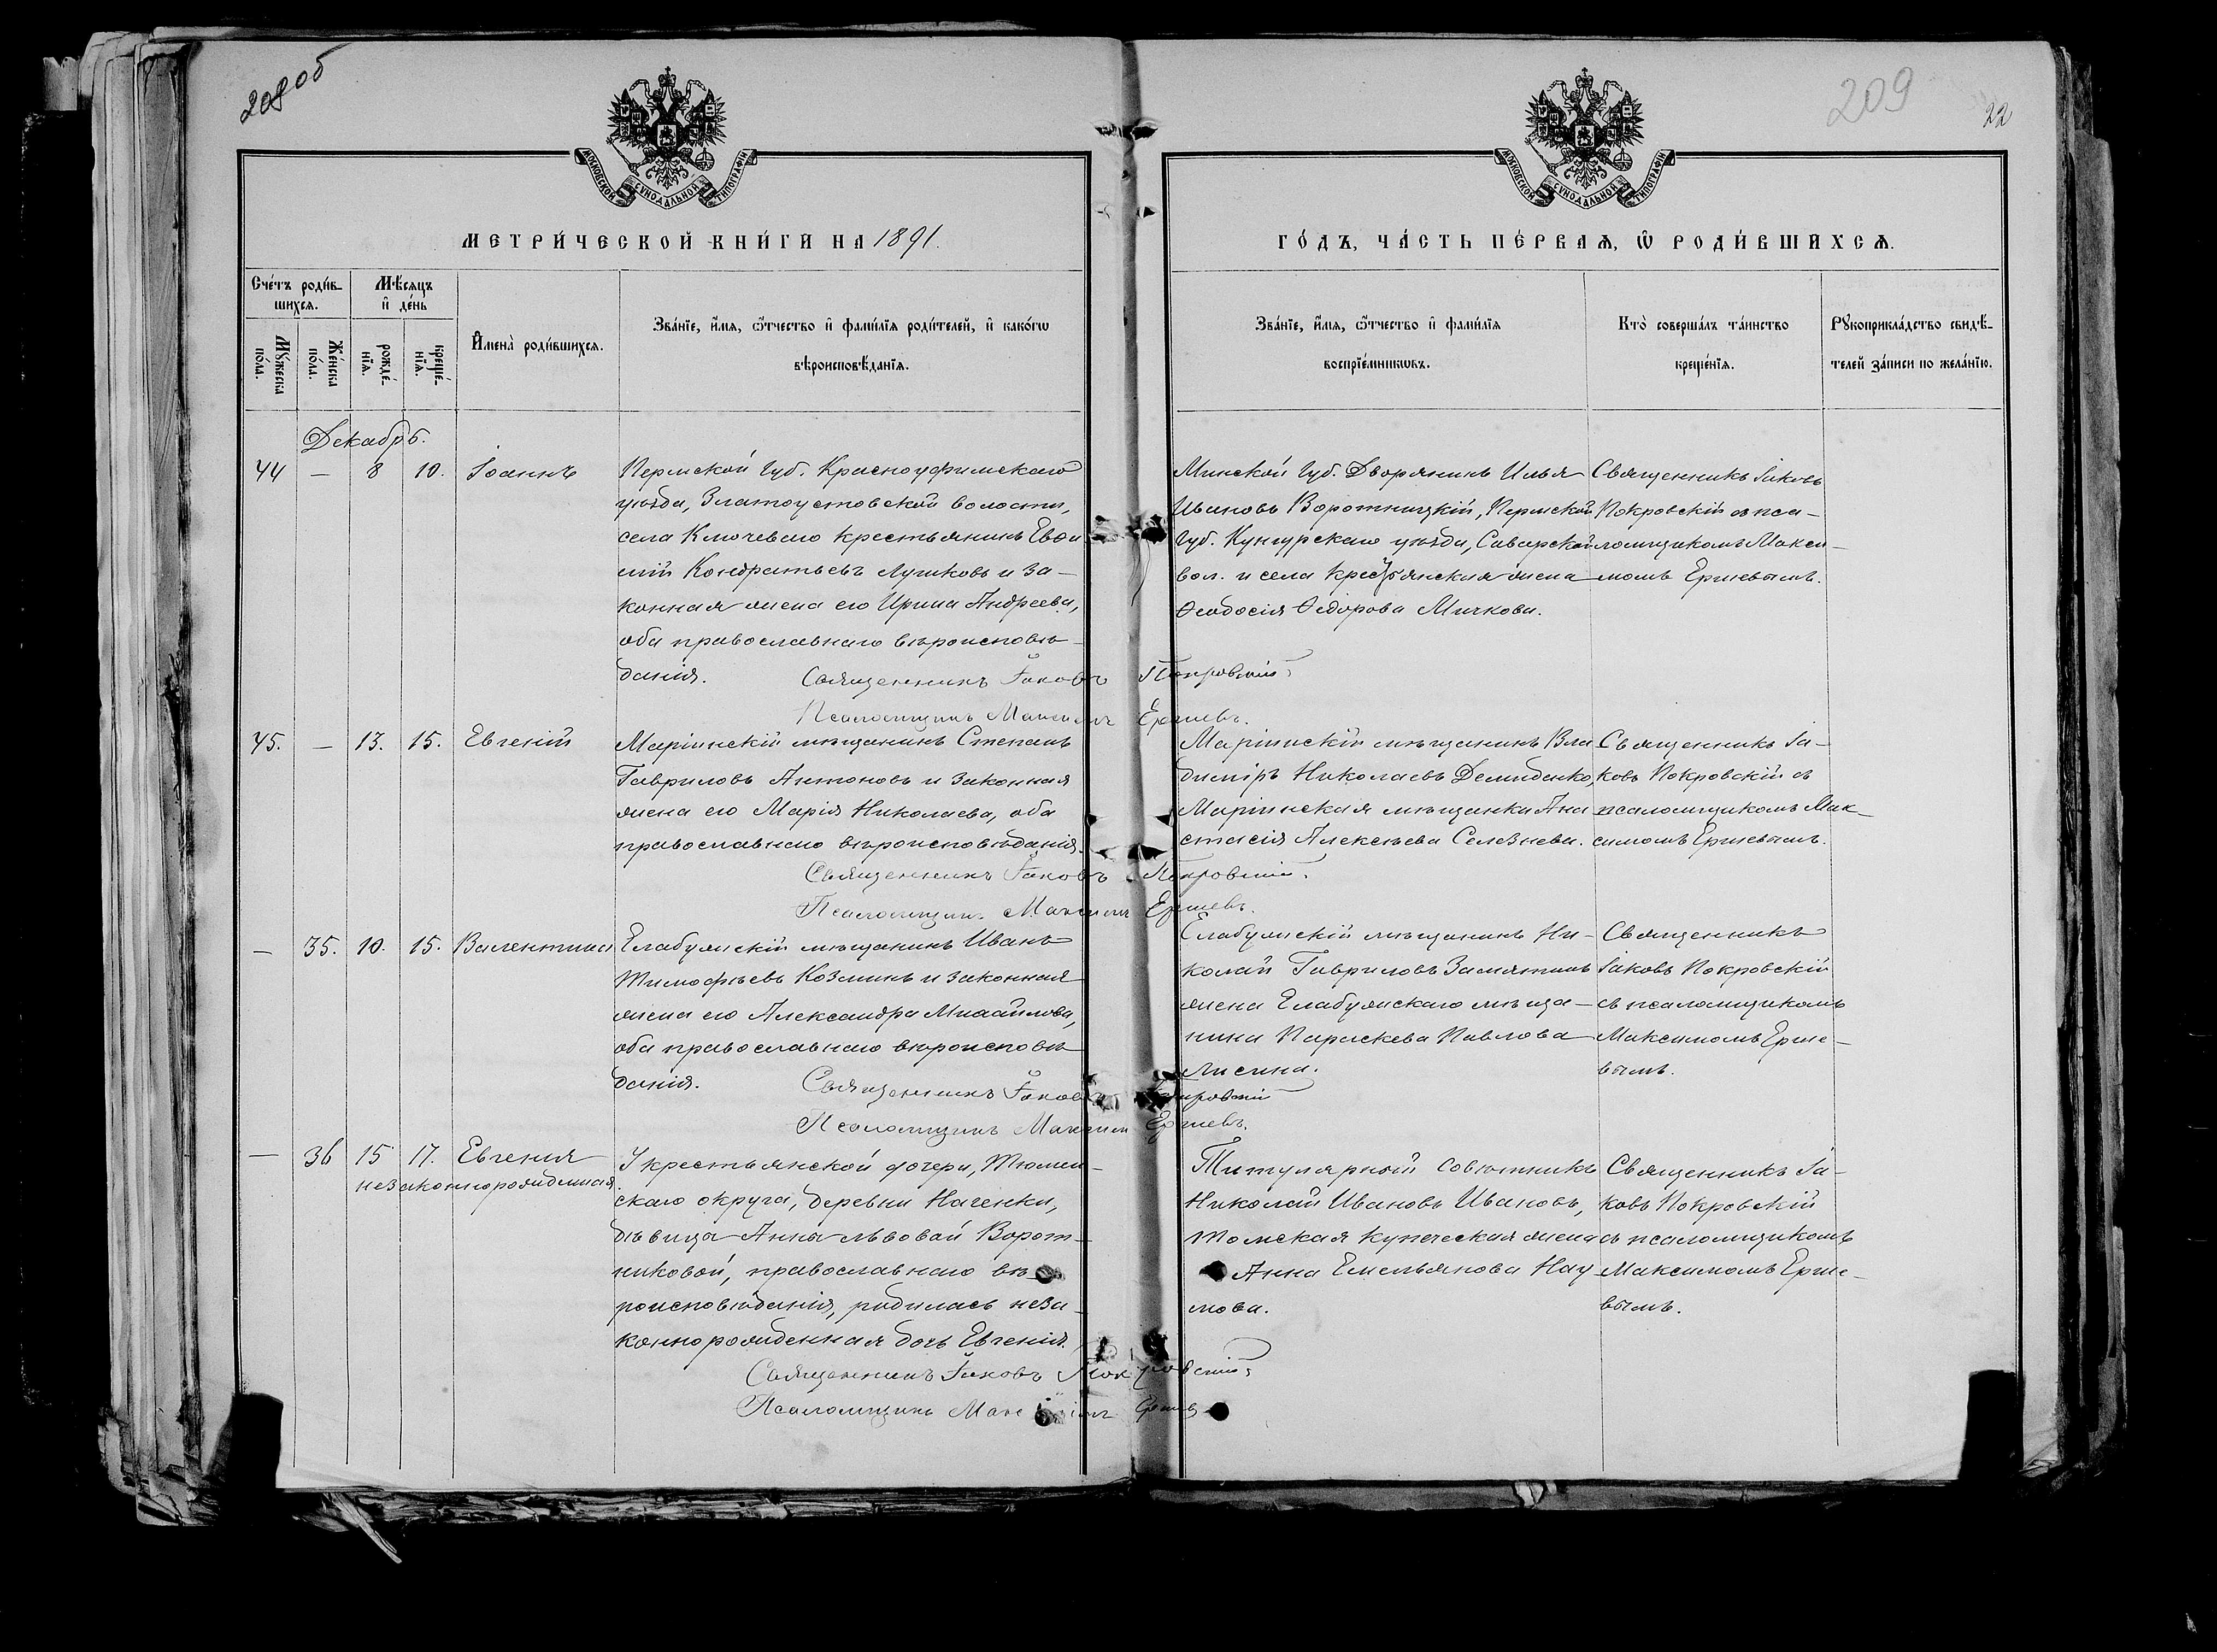 209 об
209
22
МОСКОВСКОЙ СѴНОДАЛЬНОЙ ТИПОГРАФІИ
МОСКОВСКОЙ СѴНОДАЛЬНОЙ ТИПОГРАФІИ
МЕТРИ́ЧЕСКОЙ КНИ́ГИ НА 1891.
ГО́ДЪ, ЧА́СТЬ ПЕ́РВАѦ, Ѡ҆ РОДИ́ВШИХСѦ.
Сче́тъ роди́в-
шихсѧ.
Мꙋ́жеска
по́ла.
Же́нска
по́ла.
Мѣ́сѧцъ
и҆ де́нь
рожде́-
нїѧ.
креще́-
нїѧ.
И҆мена̀ роди́вшихсѧ.
Зва́нїе, и҆́мѧ, ѻ҆́тчество и҆ фами́лїѧ роди́телей, и҆ како́гѡ
вѣроисповѣ́данїѧ.
Зва́нїе, и҆́мѧ, ѻ҆́тчество и҆ фами́лїѧ
воспрїе́мникѡвъ.
Кто̀ соверша́лъ та́инство
креще́нїѧ.
Рꙋкоприкла́дство свидѣ́-
телей за́писи по жела́нїю.
Декабрь.
44 — 8 10. Іоаннъ
Пермской губ. Красноуфимскаго
уѣзда, Златоустовской волости,
села Ключеваго крестьянинъ Евфи
мій Кондратьевъ Лушковъ и за-
конная жена его Ирина Андреева,
оба православнаго вѣроисповѣ-
данія. Священникъ Іаковъ Покровскій
Псаломщикъ Максимъ Ершевъ.
Минской губ. Дворянинъ Илья
Ивановъ Воротницкій, Пермской
губ. Кунгурскаго уѣзда, Саварской
вол. и села крестьянская жена
Ѳеодосія Ѳедорова Мичкова.
Священникъ Іаковъ
Покровскій съ пса-
ломщикомъ Макси-
момъ Ершевымъ.
45. — 13. 15. Евгеній
Маріинскій мѣщанинъ Степанъ
Гавриловъ Антоновъ и законная
жена его Марія Николаева, оба
православнаго вѣроисповѣданія.
Священникъ Іаковъ Покровскій.
Псаломщикъ Максимъ Ершевъ.
Маріинскій мѣщанинъ Вла
диміръ Николаевъ Демиденко,
Маріинская мѣщанка Ана
стасія Алексѣева Селезнева.
Священникъ Іа-
ковъ Покровскій съ
псаломщикомъ Мак-
симомъ Ершевымъ.
— 35. 10. 15. Валентина
Елабужскій мѣщанинъ Иванъ
Тимофѣевъ Козминъ и законная
жена его Александра Михайлова,
оба православнаго вѣроисповѣ
данія. Священникъ Іаковъ Покровскій
Псаломщикъ Максимъ Ершевъ.
Елабужскій мѣщанинъ Ни-
колай Гавриловъ Замятинъ
жена Елабужскаго мѣща-
нина Параскева Павлова
Лисина.
Священникъ
Іаковъ Покровскій
съ псаломщикомъ
Максимомъ Ерше-
вымъ.
— 36 15 17. Евгенія
незаконнорожденная.
У крестьянской дочери, Тюмен-
скаго округа, деревни Наченки,
дѣвица Анна Львовой Ворот-
никовой, православнаго вѣ-
роисповѣданія, родилась неза-
коннорожденная дочь Евгенія.
Священникъ Іаковъ Покровскій
Псаломщикъ Максимъ Ершевъ
Титулярной совѣтникъ
Николай Ивановъ Ивановъ,
Томская купеческая жена
Анна Емельянова Нау-
мова.
Священникъ Іа-
ковъ Покровскій
съ псаломщикомъ
Максимомъ Ерше-
вымъ.